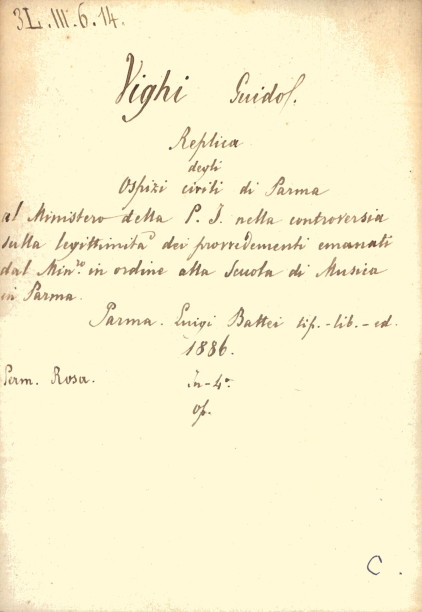 3L.III.6.14.
Vighi Guidof.
Replica
degli
Ospizi civili di Parma
al Ministero della P. I. nella controversia
sulla legittimità dei provvedimenti emanati
dal Min.ro in ordine alla Scuola di Musica
in Parma.
Parma. Luigi Battei tip.-lib.-ed.
1886.
Perm. Rosa. In-4°
op.
C.